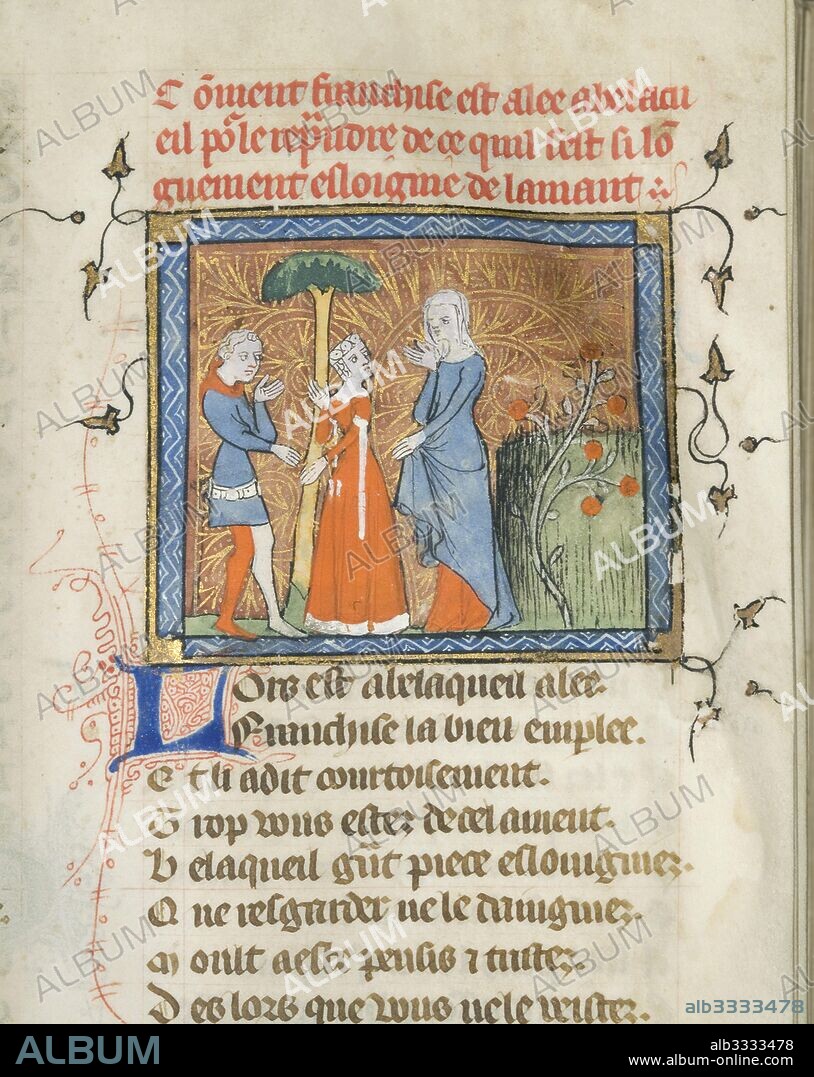 Cōment franchise est alee abelacu
eil po᷑ le rep᷑ndre de ce quil sest si lō
guement esloigne de lamant
Lors est abelaqueil alee.
Franchise la bien emplee.
Et li a dit courtoisement.
Trop vous estez de cel ament.
Belaqueil g᷑nt piece eslongniez.
Que resgarder ne le daingniez.
Moult a este pensis ⁊ tristez.
Des lors que vous ne le veistez.
ALBUM
alb3333478
alb3333478
www.album-online.com